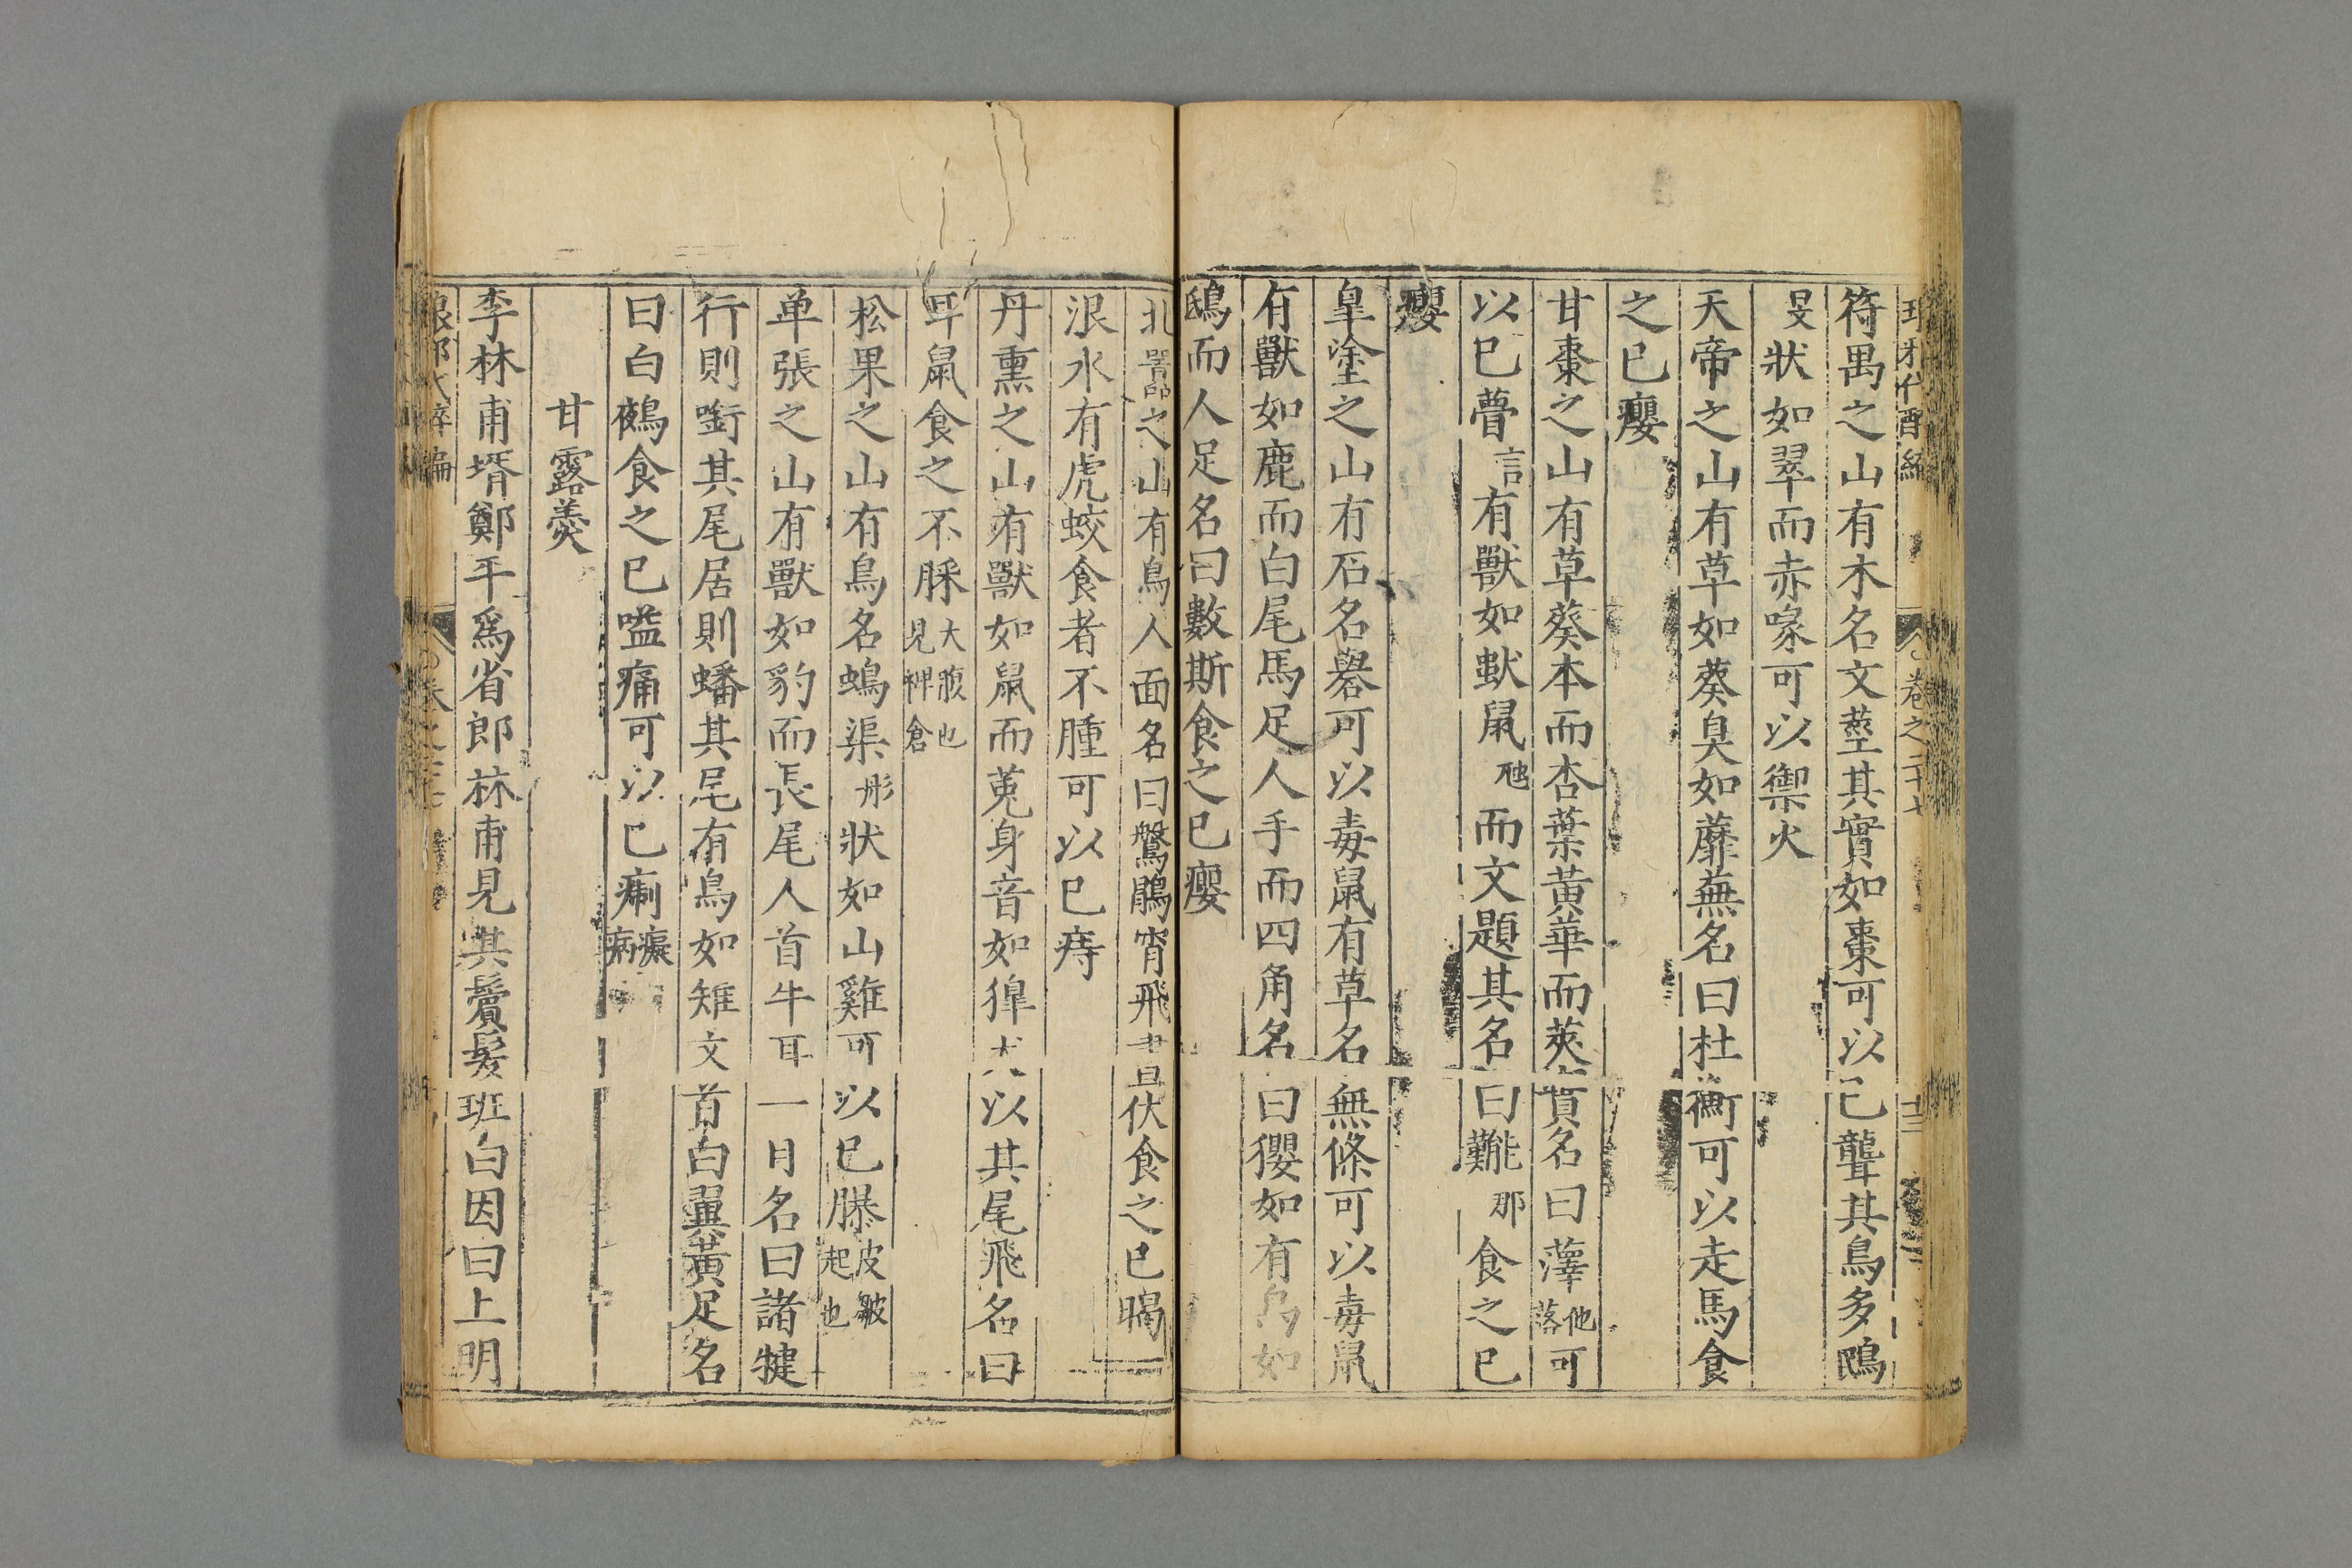 卷之二十七
符禺之山有木名文莖其實如棗可以已聾其鳥多鴖
旻狀如翠而赤喙可以禦火
天帝之山有草如葵臭如蘼蕪名曰杜衡可以走馬食
之已癭
甘棗之山有草葵本而杏葉黃華而莢實名曰蘀他落可
以已瞢言有獸如䶈鼠虺而文題其名曰㔮那食之已
癭
皐塗之山有石名礜可以毒鼠有草名無條可以毒鼠
有獸如鹿而白尾馬足人手而四角名曰玃如有鳥如
鴟而人足名曰數斯食之已癭
北嚻之山有鳥人面名曰鷔鶥宵飛晝伏食之已暍
泿水有虎蛟食者不腫可以已痔
丹熏之山有獸如鼠而菟身音如獋犬以其尾飛名曰
耳鼠食之不脎大腹也見裨倉
松果之山有鳥名螐渠彤狀如山雞可以已䐴皮皺起也
单張之山有獸如豹而長尾人首牛耳一目名曰諸犍
行則銜其尾居則蟠其尾有鳥如雉文首白翼黃足名
曰白鵺食之已嗌痛可以已痸癡病
甘露羹
李林甫壻鄭平爲省郎林甫見其鬢髮班白因曰上明